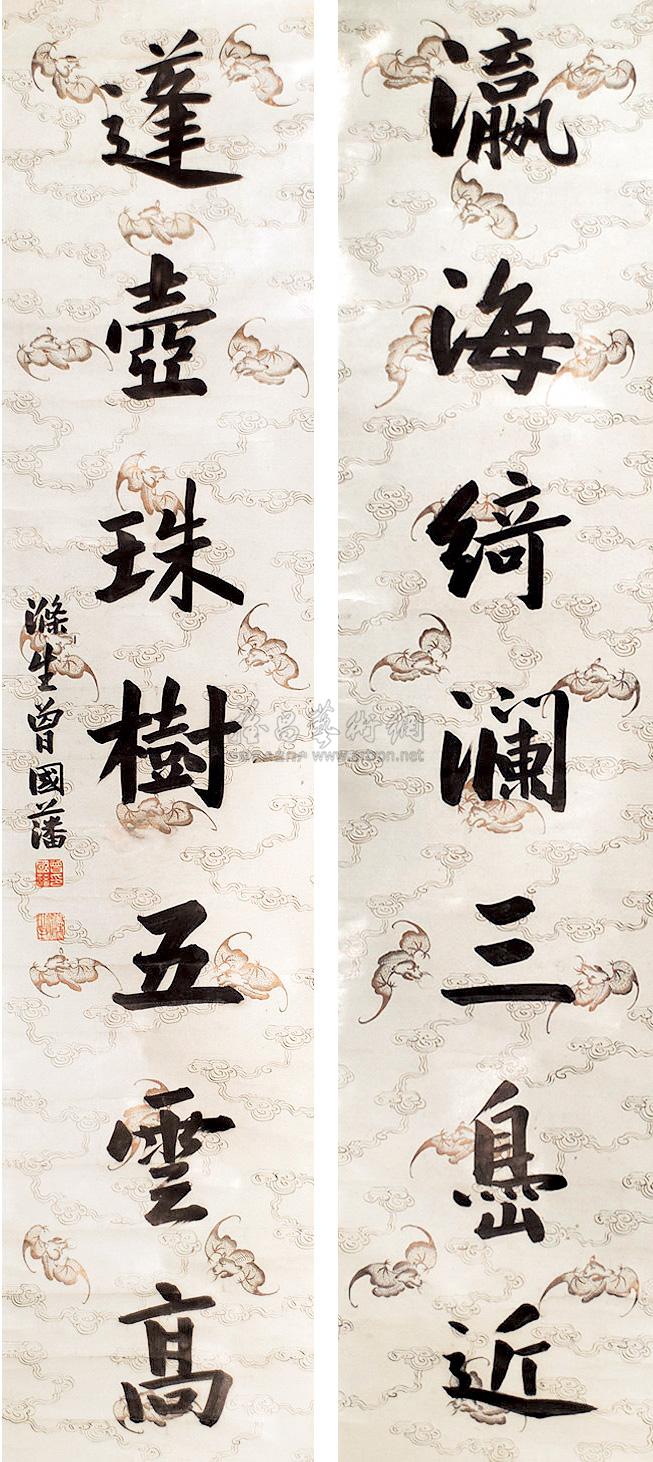 瀛海綺瀾三島近
蓬壺珠樹五雲高
滌生曾國藩
www.artron.net